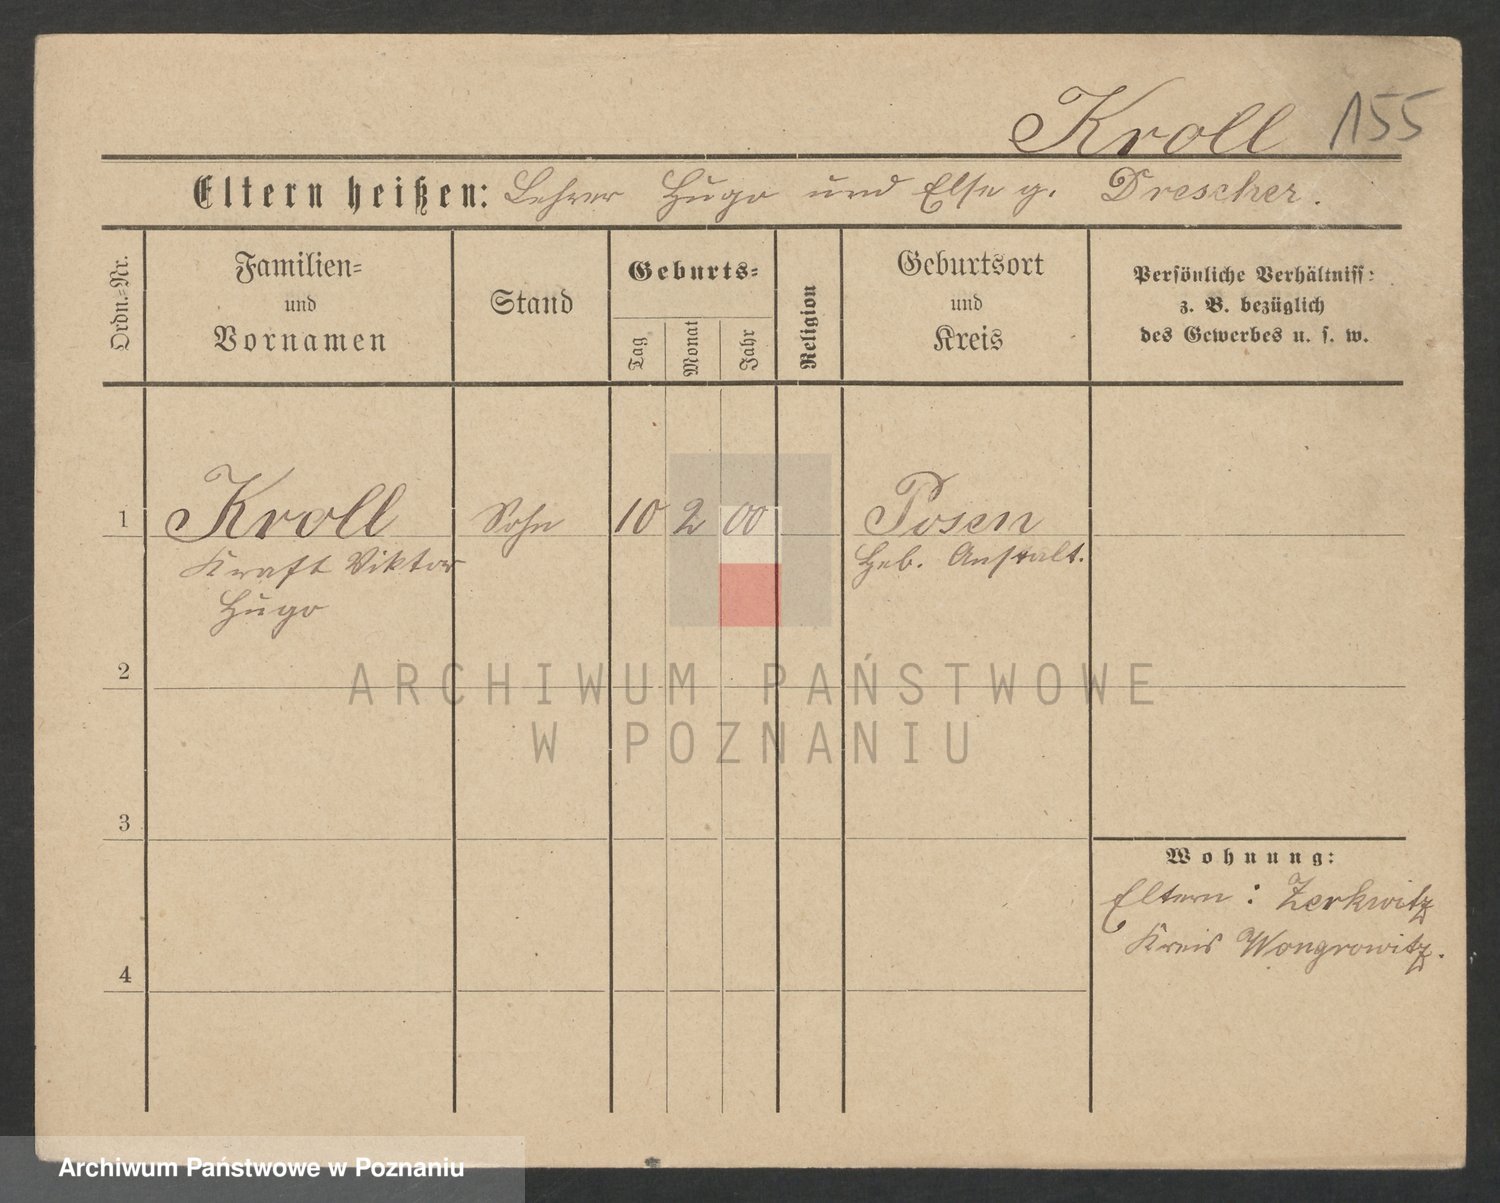 Kroll 155
Eltern heißen: Lehrer Hugo und Else g. Drescher.
Ordn.-Nr.
Familien-
und
Vornamen
Stand
Geburts-
Tag
Monat
Jahr
Religion
Geburtsort
und
Kreis
Persönliche Verhältniss:
z. B. bezüglich
des Gewerbes u. s. w.
1 Kroll Sohn 10 2 00 Posen
Kraft Viktor Heb. Anstalt.
Hugo
2
3
4
Wohnung:
Eltern: Zerkwitz
Kreis Wongrowitz.
ARCHIWUM PAŃSTWOWE
W POZNANIU
Archiwum Państwowe w Poznaniu